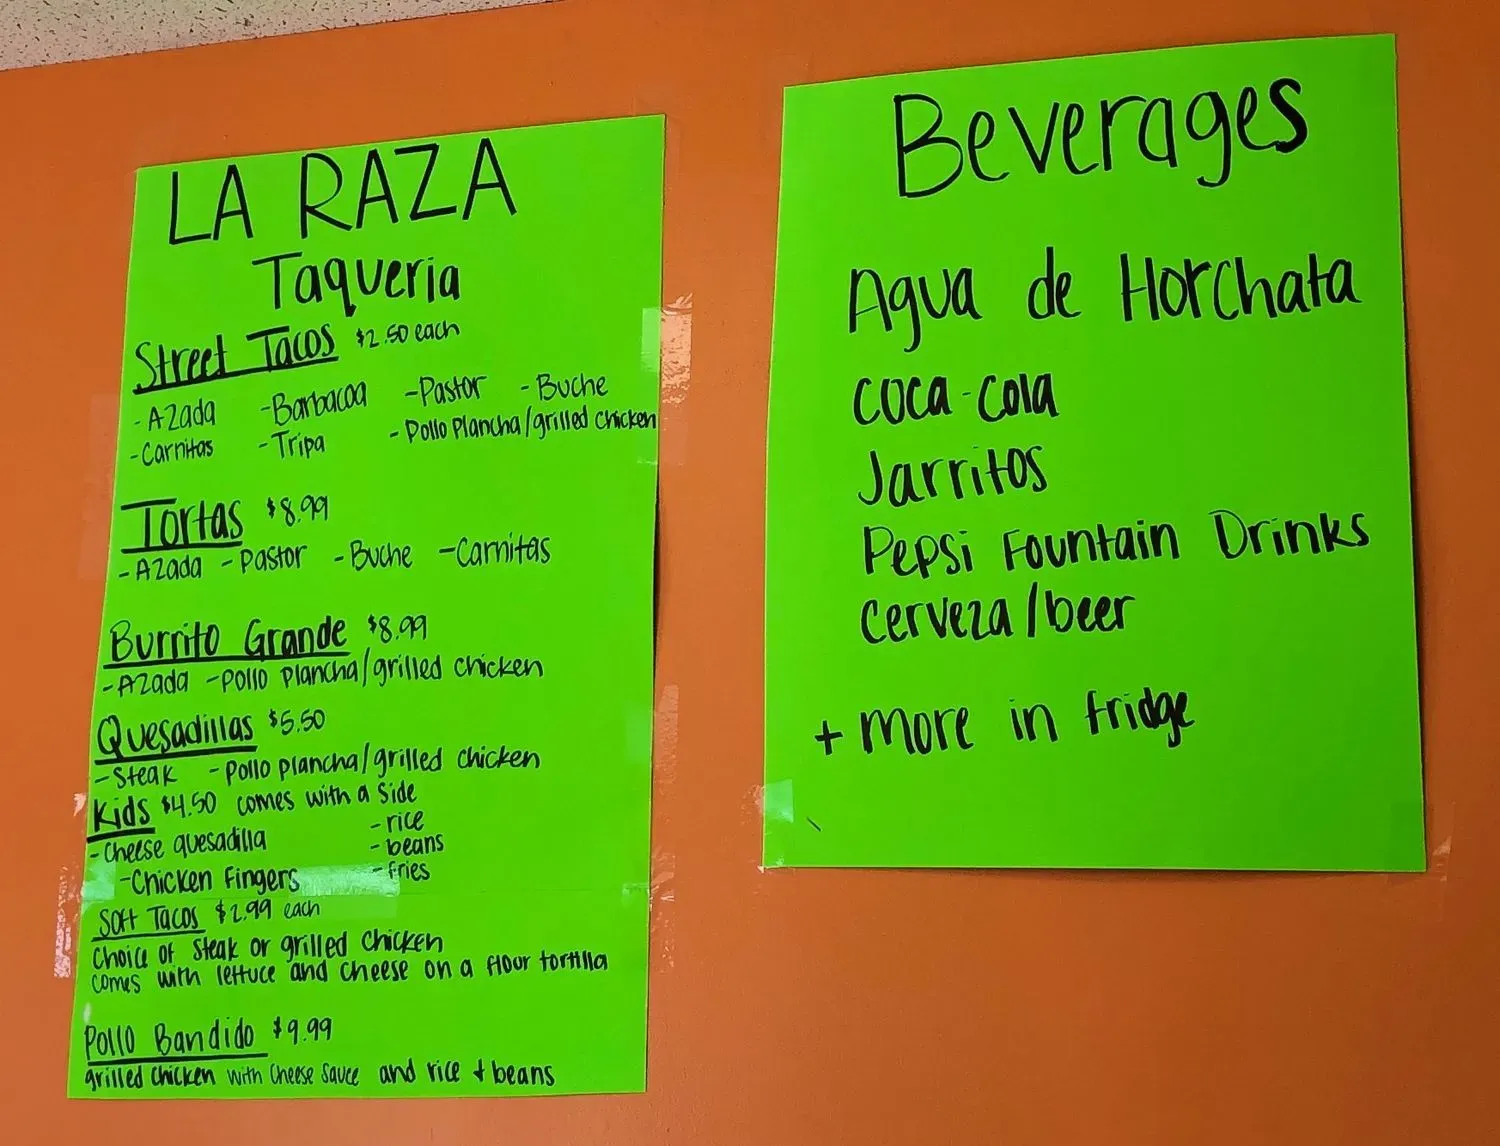 LA RAZA
Taqueria
Street Tacos $2.50 each
- AZada -Barbacoa -Pastor - Buche
-Carnitas -Tripa - Pollo Plancha/grilled chicken
Tortas $8.99
- AZada - Pastor - Buche -Carnitas
Burrito Grande $8.99
- AZada -Pollo Plancha/grilled chicken
Quesadillas $5.50
-Steak -Pollo plancha/grilled chicken
Kids $4.50 comes with a side
- rice
- Cheese quesadilla - beans
-Chicken Fingers - fries
Soft Tacos $2.99 each
Choice of Steak or grilled Chicken
comes with lettuce and cheese on a flour tortilla
Pollo Bandido $9.99
grilled chicken with Cheese Sauce and rice + beans
Beverages
Agua de Horchata
Coca-Cola
Jarritos
Pepsi Fountain Drinks
Cerveza/beer
+ more in fridge